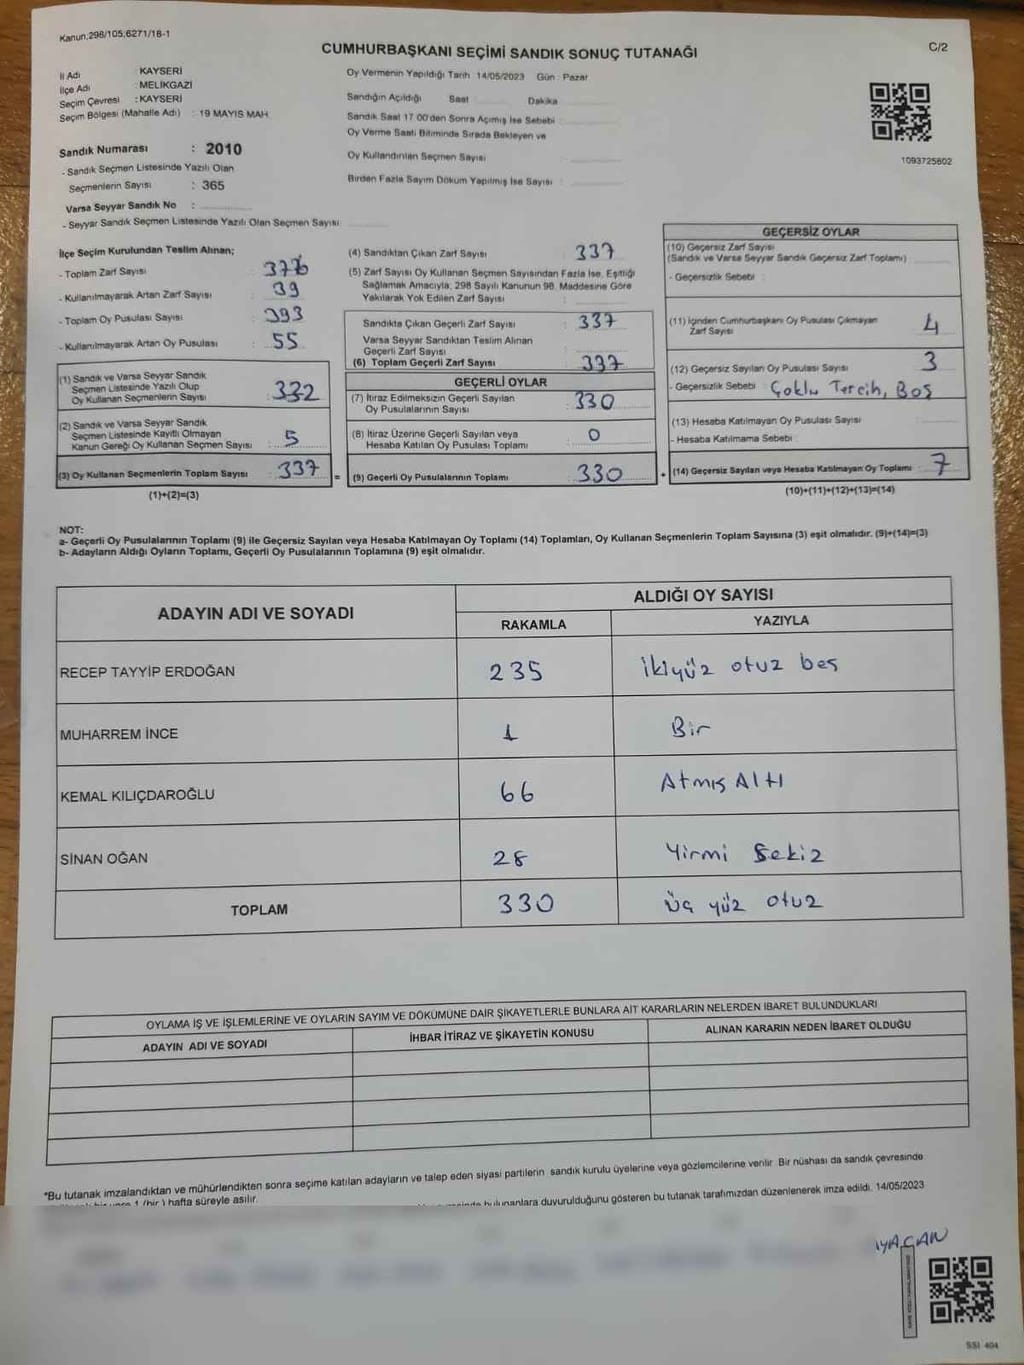 Kanun,298/105,6271/18-1
CUMHURBAŞKANI SEÇİMİ SANDIK SONUÇ TUTANAĞI
C/2
İl Adı : KAYSERİ
İlçe Adı : MELİKGAZİ
Seçim Çevresi : KAYSERİ
Seçim Bölgesi (Mahalle Adı) : 19 MAYIS MAH.
Sandık Numarası : 2010
- Sandık Seçmen Listesinde Yazılı Olan
Seçmenlerin Sayısı : 365
Varsa Seyyar Sandık No :
- Seyyar Sandık Seçmen Listesinde Yazılı Olan Seçmen Sayısı
Oy Vermenin Yapıldığı Tarih 14/05/2023 Gün : Pazar
Sandığın Açıldığı Saat Dakika
Sandık Saat 17.00'den Sonra Açımış İse Sebebi
Oy Verme Saati Bitiminde Sırada Bekleyen ve
Oy Kullandırılan Seçmen Sayısı
Birden Fazla Sayım Döküm Yapılmış İse Sayısı :
1093725602
İlçe Seçim Kurulundan Teslim Alınan;
- Toplam Zarf Sayısı : 376
- Kullanılmayarak Artan Zarf Sayısı : 39
- Toplam Oy Pusulası Sayısı : 393
- Kullanılmayarak Artan Oy Pusulası : 55
(1) Sandık ve Varsa Seyyar Sandık
Seçmen Listesinde Yazılı Olup
Oy Kullanan Seçmenlerin Sayısı : 332
(2) Sandık ve Varsa Seyyar Sandık
Seçmen Listesinde Kayıtlı Olmayan
Kanun Gereği Oy Kullanan Seçmen Sayısı : 5
(3) Oy Kullanan Seçmenlerin Toplam Sayısı : 337 =
(1)+(2)=(3)
(4) Sandıktan Çıkan Zarf Sayısı : 337
(5) Zarf Sayısı Oy Kullanan Seçmen Sayısından Fazla İse, Eşitliği
Sağlamak Amacıyla, 298 Sayılı Kanunun 98. Maddesine Göre
Yakılarak Yok Edilen Zarf Sayısı :
Sandıkta Çıkan Geçerli Zarf Sayısı : 337
Varsa Seyyar Sandıktan Teslim Alınan
Geçerli Zarf Sayısı :
(6) Toplam Geçerli Zarf Sayısı : 337
GEÇERLİ OYLAR
(7) İtiraz Edilmeksizin Geçerli Sayılan
Oy Pusulalarının Sayısı : 330
(8) İtiraz Üzerine Geçerli Sayılan veya
Hesaba Katılan Oy Pusulası Toplamı : 0
(9) Geçerli Oy Pusulalarının Toplamı : 330 +
GEÇERSİZ OYLAR
(10) Geçersiz Zarf Sayısı
(Sandık ve Varsa Seyyar Sandık Geçersiz Zarf Toplamı)
- Geçersizlik Sebebi :
(11) İçinden Cumhurbaşkanı Oy Pusulası Çıkmayan
Zarf Sayısı : 4
(12) Geçersiz Sayılan Oy Pusulası Sayısı : 3
- Geçersizlik Sebebi : Çoklu Tercih, Boş
(13) Hesaba Katılmayan Oy Pusulası Sayısı :
- Hesaba Katılmama Sebebi :
(14) Geçersiz Sayılan veya Hesaba Katılmayan Oy Toplamı : 7
(10)+(11)+(12)+(13)=(14)
NOT:
a- Geçerli Oy Pusulalarının Toplamı (9) ile Geçersiz Sayılan veya Hesaba Katılmayan Oy Toplamı (14) Toplamları, Oy Kullanan Seçmenlerin Toplam Sayısına (3) eşit olmalıdır. (9)+(14)=(3)
b- Adayların Aldığı Oyların Toplamı, Geçerli Oy Pusulalarının Toplamına (9) eşit olmalıdır.
ADAYIN ADI VE SOYADI
ALDIĞI OY SAYISI
RAKAMLA YAZIYLA
RECEP TAYYİP ERDOĞAN 235 ikiyüz otuz beş
MUHARREM İNCE 1 Bir
KEMAL KILIÇDAROĞLU 66 Atmış Altı
SİNAN OĞAN 28 Yirmi Sekiz
TOPLAM 330 üç yüz otuz
OYLAMA İŞ VE İŞLEMLERİNE VE OYLARIN SAYIM VE DÖKÜMÜNE DAİR ŞİKAYETLERLE BUNLARA AİT KARARLARIN NELERDEN İBARET BULUNDUKLARI
ADAYIN ADI VE SOYADI İHBAR İTİRAZ VE ŞİKAYETİN KONUSU ALINAN KARARIN NEDEN İBARET OLDUĞU
*Bu tutanak imzalandıktan ve mühürlendikten sonra seçime katılan adayların ve talep eden siyasi partilerin sandık kurulu üyelerine veya gözlemcilerine verilir. Bir nüshası da sandık çevresinde
1 (bir) hafta süreyle asılır.
bulunanlara duyurulduğunu gösteren bu tutanak tarafımızdan düzenlenerek imza edildi. 14/05/2023
SSI 404